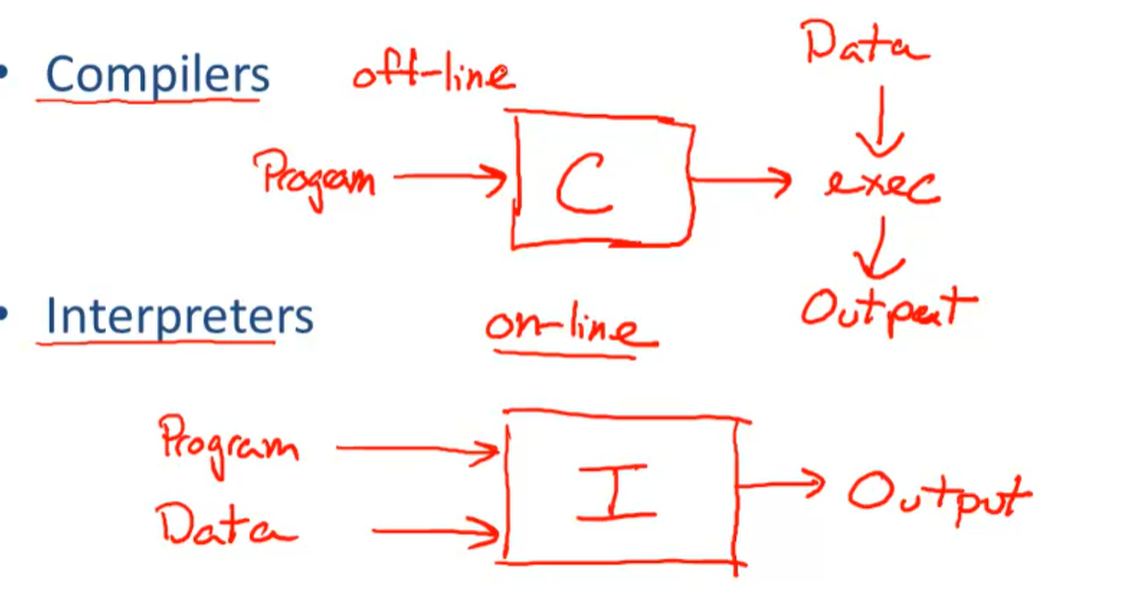 • Compilers off-line Data
Program → C → exec
Output
• Interpreters on-line
Program → I → Output
Data →